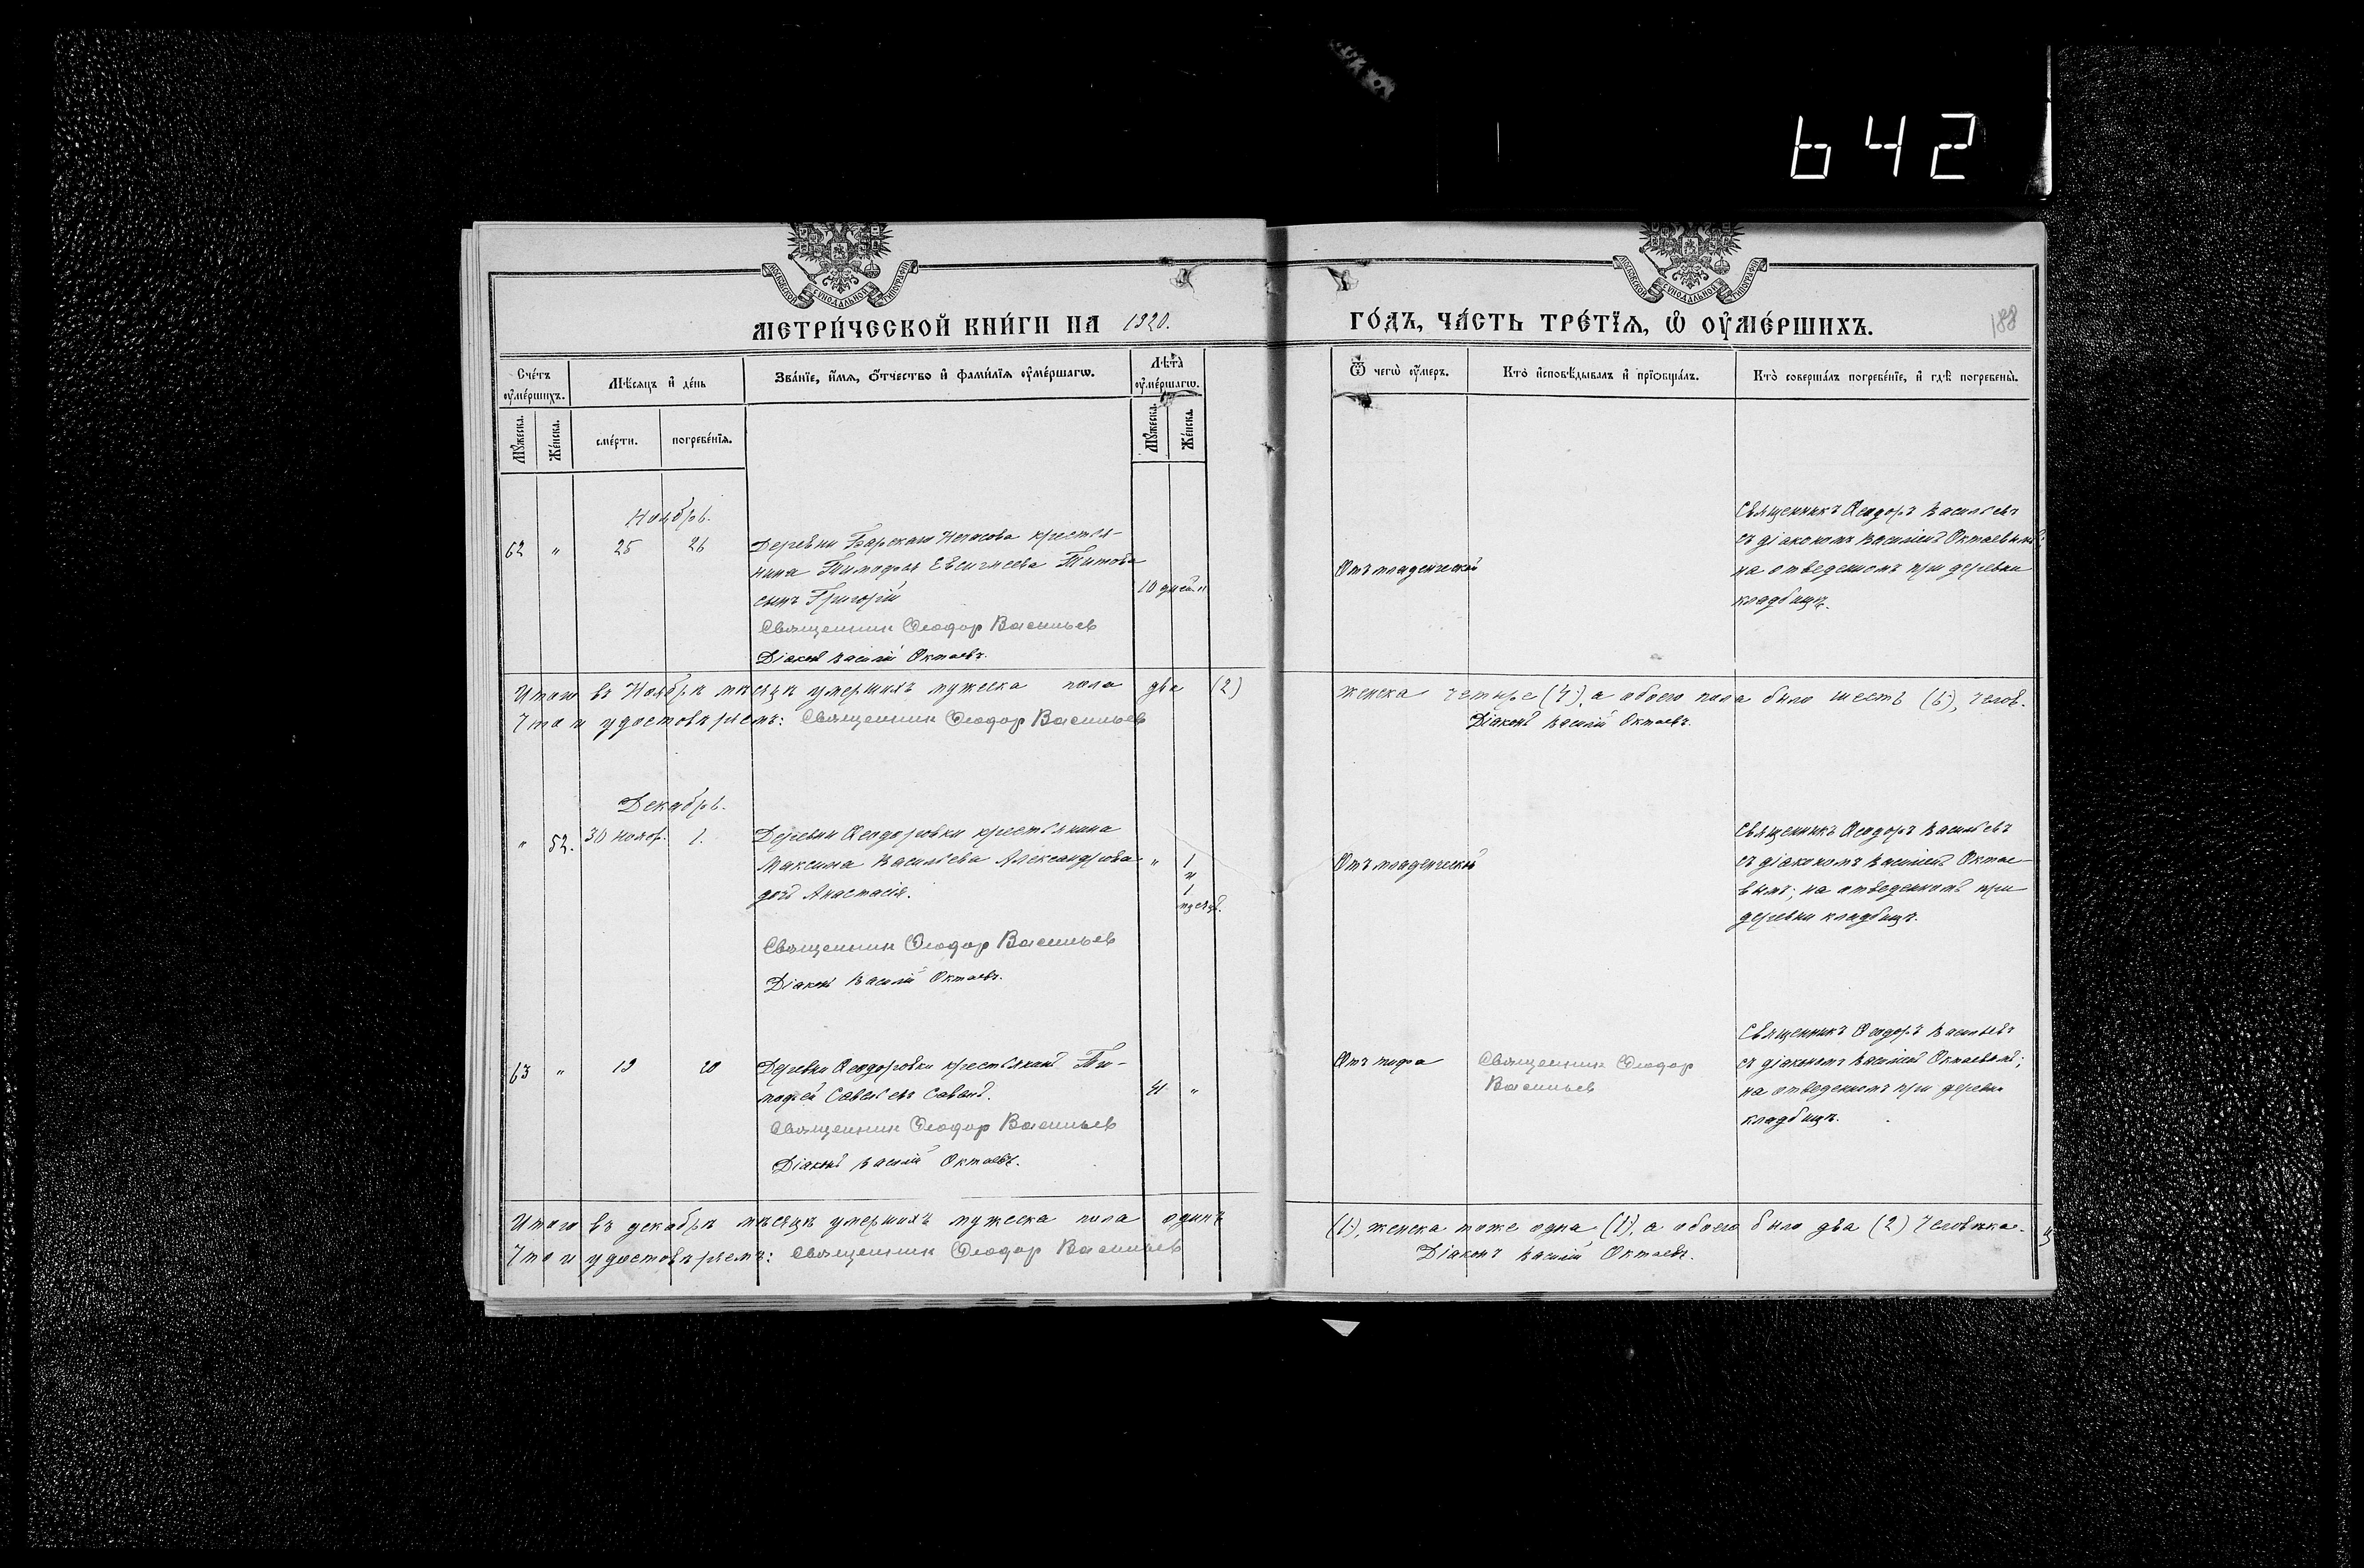 642
МОСКОВСКОЙ СУНОДАЛЬНОЙ ТИПОГРАФІИ
МОСКОВСКОЙ СУНОДАЛЬНОЙ ТИПОГРАФІИ
МЕТРИ́ЧЕСКОЙ КНИ́ГИ НА 1920.
ГО́ДЪ, ЧА́СТЬ ТРЕ́ТІѦ, Ѡ҆ ОУ҆МЕ́РШИХЪ.
188
Сче́тъ оу҆ме́ршихъ.
Мѣ́сяцъ и҆ де́нь
Зва́нїе, и҆́мѧ, ѻ҆́тчество и҆ фами́лїѧ оу҆ме́ршагѡ.
Лѣ́та оу҆ме́ршагѡ.
Ѿ чегѡ̀ оу҆́меръ.
Кто̀ и҆сповѣ́дывалъ и҆ прїѡбща́лъ.
Кто̀ соверша́лъ погребе́нїе, и҆ гдѣ̀ погребены̀.
Мꙋ́жеска.
Же́нска.
сме́рти.
погребе́нїѧ.
Мꙋ́жеска.
Же́нска.
Ноябрь.
62 " 25 26
Деревни Барскаго крестья-
нина Тимофея Евсигнеева Титова
сынъ Григорій
10 дней "
Священник Ѳеодор Васильев
Діаконъ Василій Октаевъ.
Отъ младенческой
Священникъ Ѳеодоръ Васильевъ
съ діакономъ Василіемъ Октаевымъ;
на отведенномъ при деревни
кладбищѣ.
Итого въ Ноябрѣ мѣсяцѣ умершихъ мужеска пола два (2) женска четыре (4), а обоего пола было шесть (6), челов.
Что и удостовѣряемъ: Священник Ѳеодор Васильев Діаконъ Василій Октаевъ.
Декабрь.
" 52. 30 нояб. 1.
Деревни Ѳеодоровки крестьянина
Максима Васильева Александрова
дочь Анастасія.
" 1
и
1
мѣсяцъ.
Священник Ѳеодор Васильев
Діаконъ Василій Октаевъ.
Отъ младенческой
Священникъ Ѳеодоръ Васильевъ
съ діакономъ Василіемъ Октае-
вымъ; на отведенномъ при
деревни кладбищѣ.
63 " 19 20
Деревни Ѳеодоровки крестьянинъ Ти-
мофей Савельевъ
41 "
Священник Ѳеодор Васильев
Діаконъ Василій Октаевъ.
Отъ тифа
Священник Ѳеодор
Васильев
Священникъ Ѳеодоръ Васильевъ
съ діакономъ Василіемъ Октаевымъ;
на отведенномъ при деревни
кладбищѣ.
Итого въ декабрѣ мѣсяцѣ умершихъ мужеска пола одинъ (1), женска тоже одна (1), а обоего было два (2) человѣка.
Что и удостовѣряемъ: Священник Ѳеодор Васильев Діаконъ Василій Октаевъ.